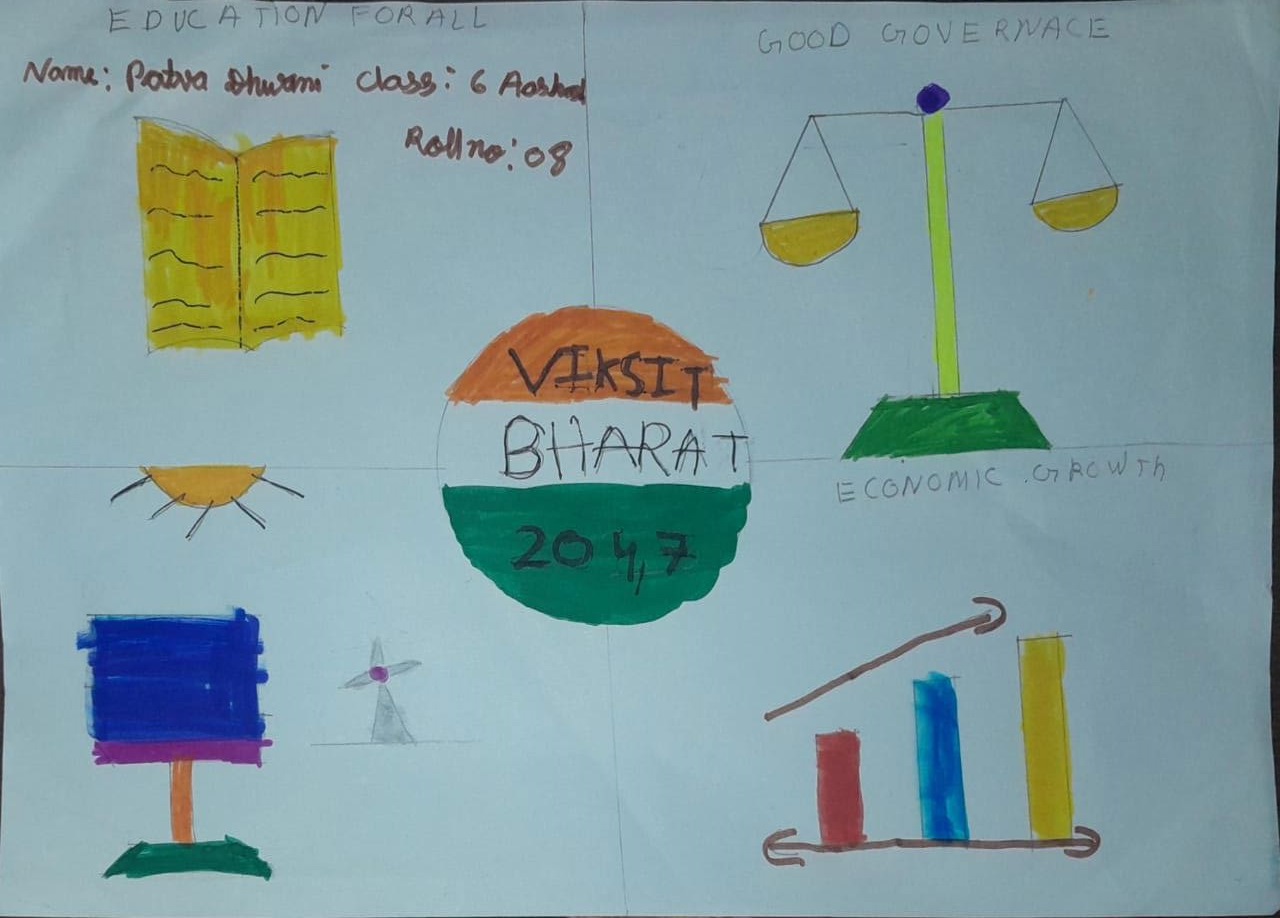 EDUCATION FOR ALL
Name: Patva Dhwani Class: 6
Roll no: 08
GOOD GOVERNACE
VIKSIT
BHARAT
2047
ECONOMIC GROWTh